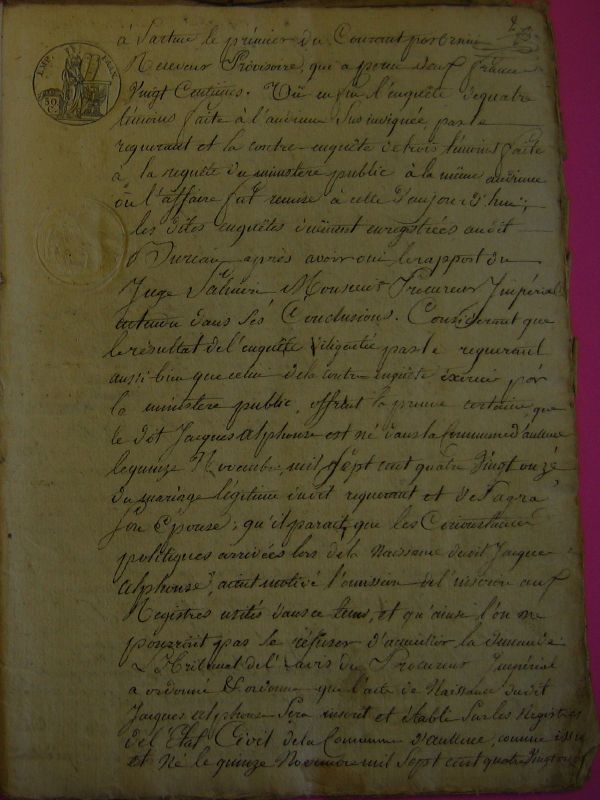 2
IMP. FRAN.
50 C.
à Sartène le premier du Courant par
Receveur Provisoire, qui a perçu neuf francs
Vingt Centimes. Vû enfin l'enquête de quatre
témoins faite à l'audience Sus par le
requerant et la contre-enquête de trois témoins faite
à la requête du ministere public à la même audience
où l'affaire fut remise à celle d'aujourd'hui;
les dites enquêtes dûment enregistrées audit
Bureau, après avoir oui le rapport du
Juge Monsieur Procureur Impérial
entendu dans ses Conclusions. Considerant que
le résultat de l'enquête par le requerant
aussi bien que celui de la contre enquête par
le ministere public, offrent la preuve certaine que
le dit Jacques Alphonse est né dans la Commune d'aullene
le quinze Novembre mil Sept cent quatre Vingt onze
du mariage légitime dudit requerant et de
Son Epouse; qu'il parait que les Circonstances
politiques arrivées lors de la Naissance dudit Jacques
Alphonse, aient motivé l'omission de l'inscrire aux
Registres usités dans ce tems, et qu'ainsi l'on ne
pourrait pas se réfuser d'acceuillir la demande.
Le Tribunal de l'avis du Procureur Impérial
a ordonné & ordonne que l'acte de Naissance dudit
Jacques Alphonse Sera inscrit et établi Sur les Registres
de l'Etat Civil de la Commune d'aullene, comme issu
et Né le quinze Novembre mil Sept cent quatre Vingt onze